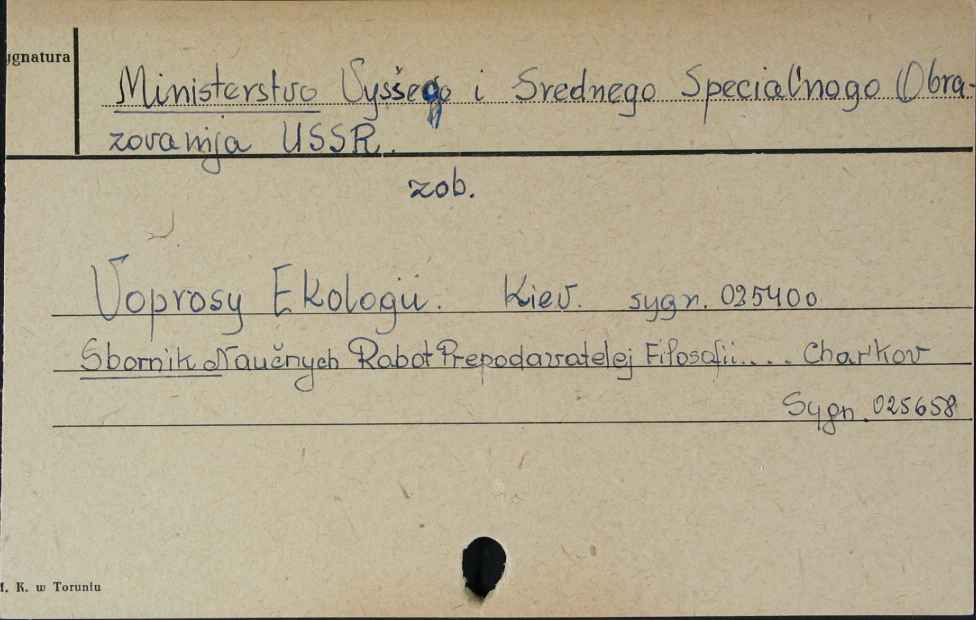 ygnatura
Ministerstvo Vysšego i Srednego Special'nogo Obra-
zovanija USSR.
zob.
Voprosy Ekologii. Kiev. sygn. 025400
Sbornik Naučnych Rabot Prepodavatelej Filosofii.... Char'kov
Sygn. 025658
M. K. w Toruniu